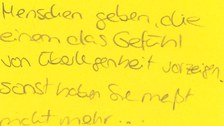 Menschen geben, die
einem das Gefühl
von Überlegenheit vorzeigen,
sonst haben Sie meßt
nicht mehr...